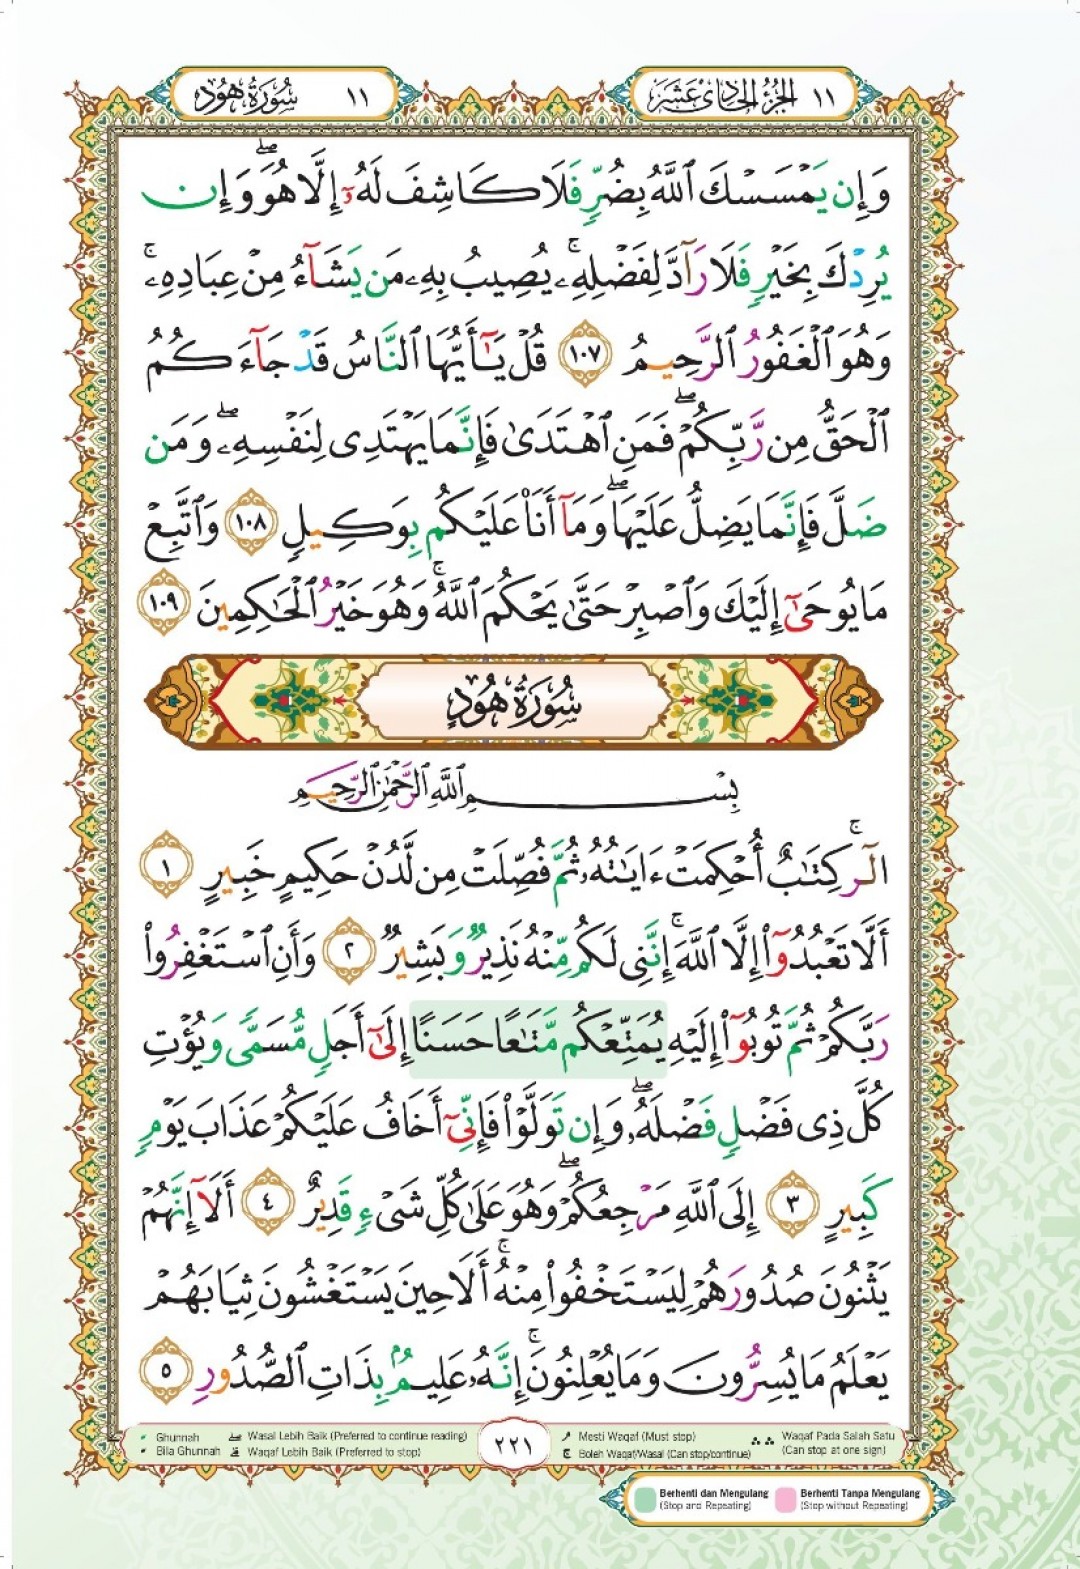 ١١ الجزء الحادي عشر
سورة هود ١١
وَإِن يَمْسَسْكَ ٱللَّهُ بِضُرٍّ فَلَا كَاشِفَ لَهُۥٓ إِلَّا هُوَ ۖ وَإِن
يُرِدْكَ بِخَيْرٍ فَلَا رَآدَّ لِفَضْلِهِۦ ۚ يُصِيبُ بِهِۦ مَن يَشَآءُ مِنْ عِبَادِهِۦ ۚ
وَهُوَ ٱلْغَفُورُ ٱلرَّحِيمُ ١٠٧ قُلْ يَـٰٓأَيُّهَا ٱلنَّاسُ قَدْ جَآءَكُمُ
ٱلْحَقُّ مِن رَّبِّكُمْ ۖ فَمَنِ ٱهْتَدَىٰ فَإِنَّمَا يَهْتَدِى لِنَفْسِهِۦ ۖ وَمَن
ضَلَّ فَإِنَّمَا يَضِلُّ عَلَيْهَا ۖ وَمَآ أَنَا۠ عَلَيْكُم بِوَكِيلٍ ١٠٨ وَٱتَّبِعْ
مَا يُوحَىٰٓ إِلَيْكَ وَٱصْبِرْ حَتَّىٰ يَحْكُمَ ٱللَّهُ ۚ وَهُوَ خَيْرُ ٱلْحَـٰكِمِينَ ١٠٩
سُورَةُ هُودٍ
بِسْمِ ٱللَّهِ ٱلرَّحْمَـٰنِ ٱلرَّحِيمِ
الٓر ۚ كِتَـٰبٌ أُحْكِمَتْ ءَايَـٰتُهُۥ ثُمَّ فُصِّلَتْ مِن لَّدُنْ حَكِيمٍ خَبِيرٍ ١
أَلَّا تَعْبُدُوٓا۟ إِلَّا ٱللَّهَ ۚ إِنَّنِى لَكُم مِّنْهُ نَذِيرٌ وَبَشِيرٌ ٢ وَأَنِ ٱسْتَغْفِرُوا۟
رَبَّكُمْ ثُمَّ تُوبُوٓا۟ إِلَيْهِ يُمَتِّعْكُم مَّتَـٰعًا حَسَنًا إِلَىٰٓ أَجَلٍ مُّسَمًّى وَيُؤْتِ
كُلَّ ذِى فَضْلٍ فَضْلَهُۥ ۖ وَإِن تَوَلَّوْا۟ فَإِنِّىٓ أَخَافُ عَلَيْكُمْ عَذَابَ يَوْمٍ
كَبِيرٍ ٣ إِلَى ٱللَّهِ مَرْجِعُكُمْ ۖ وَهُوَ عَلَىٰ كُلِّ شَىْءٍ قَدِيرٌ ٤ أَلَآ إِنَّهُمْ
يَثْنُونَ صُدُورَهُمْ لِيَسْتَخْفُوا۟ مِنْهُ ۚ أَلَا حِينَ يَسْتَغْشُونَ ثِيَابَهُمْ
يَعْلَمُ مَا يُسِرُّونَ وَمَا يُعْلِنُونَ ۚ إِنَّهُۥ عَلِيمٌۢ بِذَاتِ ٱلصُّدُورِ ٥
Ghunnah ۖ Wasal Lebih Baik (Preferred to continue reading)
Bila Ghunnah ۗ Waqaf Lebih Baik (Preferred to stop)
٢٢١
ۘ Mesti Waqaf (Must stop)
ۚ Boleh Waqaf/Wasal (Can stop/continue)
Waqaf Pada Salah Satu
(Can stop at one sign)
Berhenti dan Mengulang
(Stop and Repeating)
Berhenti Tanpa Mengulang
(Stop without Repeating)